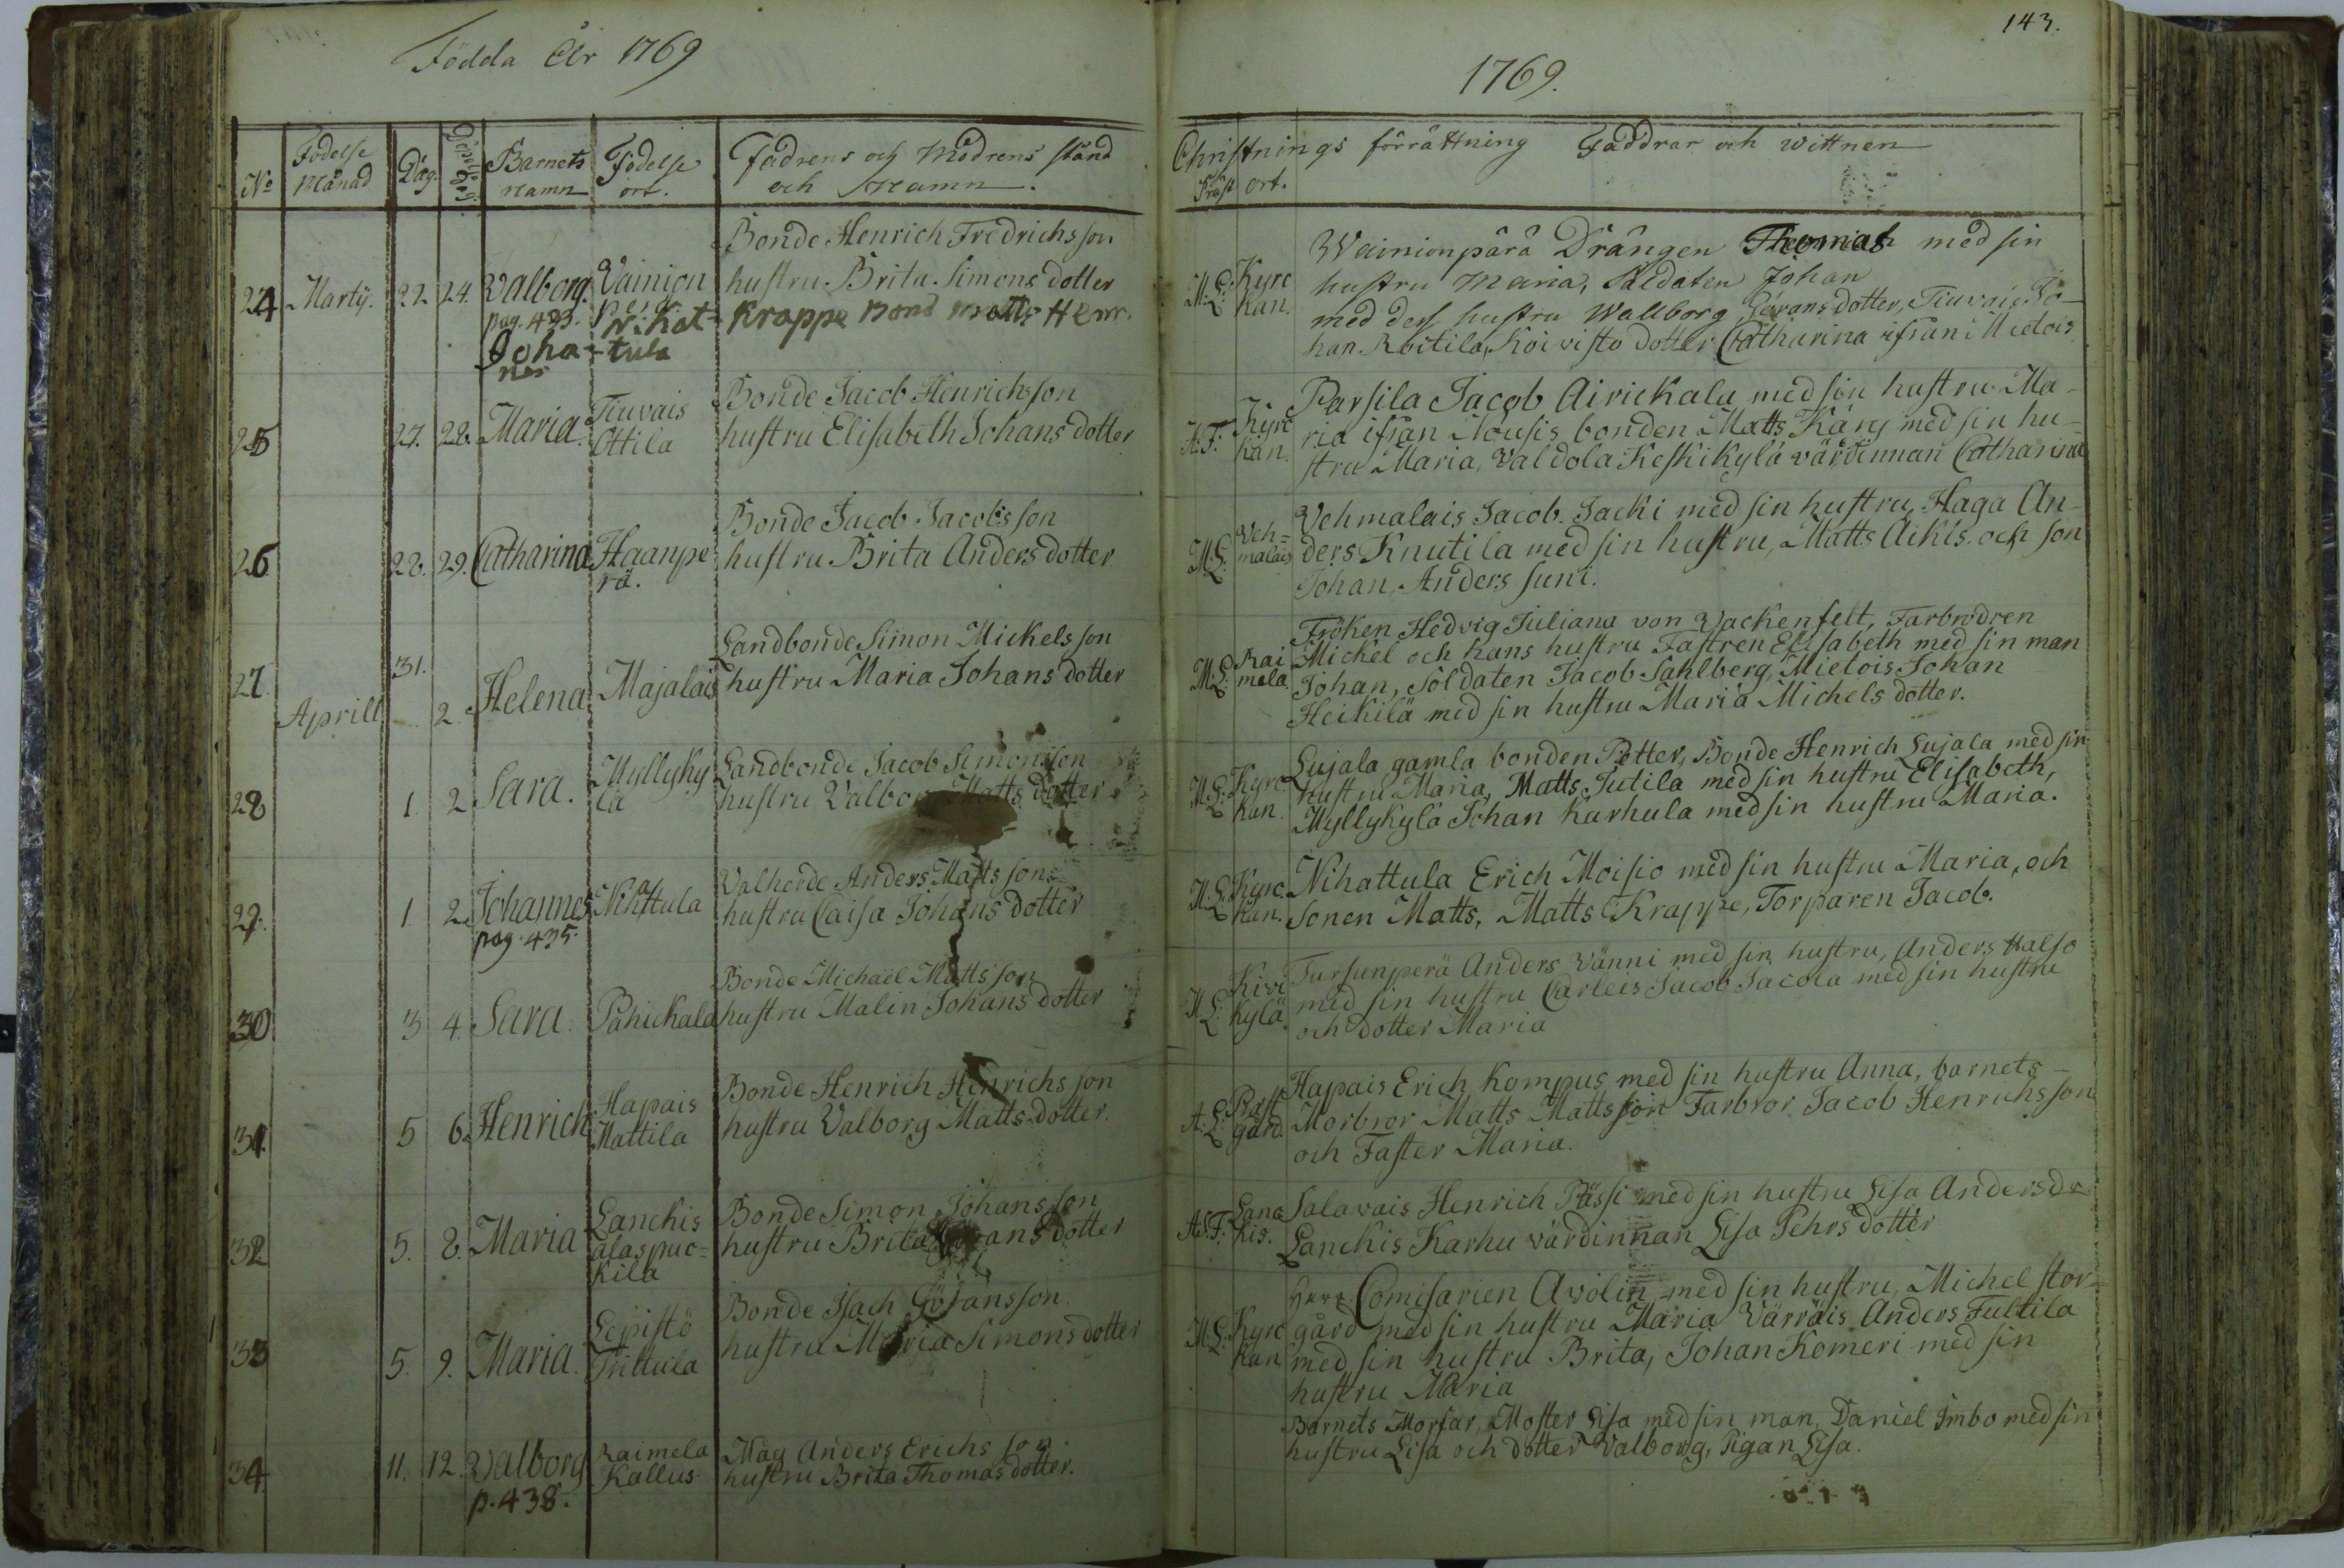 Födda År 1769
No
Födelse Månad
Dag.
Döpelse Dag
Barnets Namn
Födelse ort.
Fadrens och Modrens stånd
och Namn.
24 Martij. 22. 24. Valborg. Vainion
pag. 433.
Bonde Henrich Fredrichsson
hustru Brita Simons dotter
Joha- nes
Nihat- tula
Krappe Bond Matts Henr.
25 27. 28. Maria. Tiuvais Ottila
Bonde Jacob Henrichson
hustru Elisabeth Johans dotter
26 28. 29. Catharina Haanpe rä.
Bonde Jacob Jacobsson
hustru Brita Anders dotter
27. Aprill 31. 2. Helena Majalais
Landbonde Simon Mickelsson
hustru Maria Johans dotter
28 1. 2 Sara. Myllyky lä
Landbonde Jacob Simonsson
hustru Valbor Matts dotter
29. 1 2. Johannes Nihattula
pag. 435.
Valherde Anders Mattsson
hustru Caisa Johans dotter
30. 3 4. Sara Pahickala
Bonde Michaël Mattsson
hustru Malin Johans dotter
31. 5 6. Henrich Hapais Mattila
Bonde Henrich Henrichsson
hustru Valborg Matts dotter.
32 5. 8. Maria Lanckis alaspuc= kila
Bonde Simon Johansson
hustru Brita Görans dotter
33 5. 9. Maria. Lepistö Trittula
Bonde Isach Göransson.
hustru Maria Simons dotter
34 11. 12. Valborg Raimela Kallus
p. 438.
Måg Anders Erichs son.
hustru Brita Thomas dotter.
143.
1769.
Christnings förrättning Faddrar och wittnen
Präst ort.
M: L: Kyrc kan.
Wainionpärä Drängen Thomas med sin
hustru Maria, Soldaten Johan
med dess hustru Wallborg Görans dotter, Tiuvais Jo-
han Roitila, Koivisto dotter Catharina ifran Mietois
A: F: Kyrc kan.
Parsila Jacob Airickala med sin hustru Ma-
ria ifran Nousis bonden Matts Käng med sin hu-
stru Maria, Valdola Keskikylä värdinnan Catharina
M: L: Veh= malais
Vehmalais Jacob Jacki med sin hustru, Haga An-
ders Knutila med sin hustru, Matts Äckis och son
Johan, Anders Suni.
M: L: Rai mela
Fröken Hedvig Juliana von Vackenfelt, Farbrodren
Michel och hans hustru Fastren Elisabeth med sin man
Johan, Soldaten Jacob Sahlberg, Mietois Johan
Heikilä med sin hustru Maria Michels dotter.
M: L: Kyrc kan.
Lujala gamla bonden Petter, Bonde Henrich Lujala med sin
hustru Maria, Matts Jutila med sin hustru Elisabeth,
Myllykylä Johan Karhula med sin hustru Maria.
M: L: Kyrc. kan.
Nihattula Erich Moisio med sin hustru Maria, och
Sonen Matts, Matts Krappe, Torparen Jacob.
M L: Kivi kylä
Tursunperä Anders Vänni med sin hustru, Anders Halso
med sin hustru Carleis Jacob Jacola med sin hustru
och dotter Maria
A: L: Präst gård.
Hapais Erich Kompus med sin hustru Anna, barnets
Morbror Matts Mattsson Farbror Jacob Henrichsson
och Faster Maria.
A: F: Lanc kis.
Salavais Henrich Pässi med sin hustru Lisa Andersdr
Lanckis Karhu värdinnan Lisa Pehrs dotter
M: L: Kyrc kan
Herr Comisarien Avolin med sin hustru, Michel stor-
gård med sin hustru Maria Värräis Anders Fultila
med sin hustru Brita, Johan Komeri med sin
hustru Maria
Barnets Morfar, Moster Lisa med sin man, Daniel Imbo med sin
hustru Lisa och dotter Valborg, Pigan Lisa.